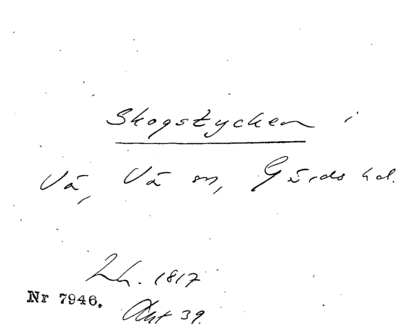 Skogstycken i
Vä, Vä sn, Gärds hd.
Lh. 1817
Nr 7946.
Akt 39.